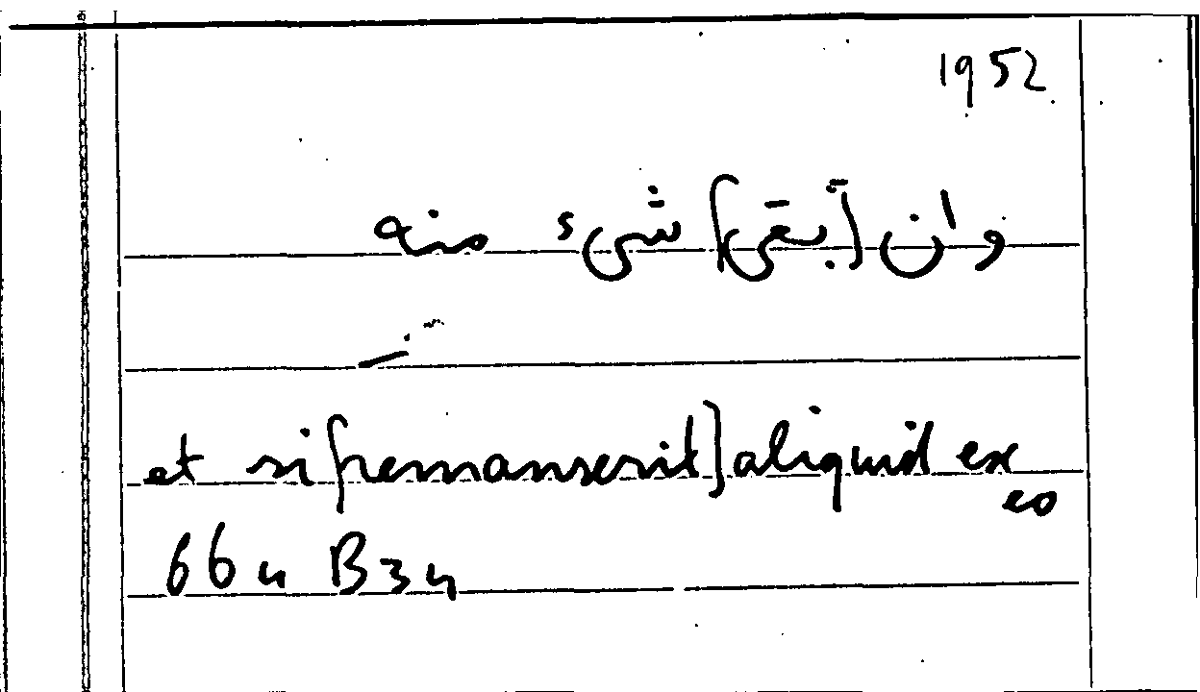 1952
وان [بقى] شىء منه
et si [remanserit] aliquid ex
eo
66 4 B 34